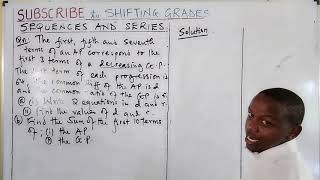 SUBSCRIBE to SHIFTING GRADES
SEQUENCES AND SERIES
Qn: The first, fifth and seventh
terms of an AP correspond to the
first 3 terms of a decreasing G.P.
The first term of each progression is
64, the common diff of the AP is d
and the common ratio of the GP is r.
a (i) Write 2 equations in d and r.
(ii) Find the values of d and r.
b) Find the sum of the first 10 terms
of: (i) the AP
(ii) the G.P.
Solution